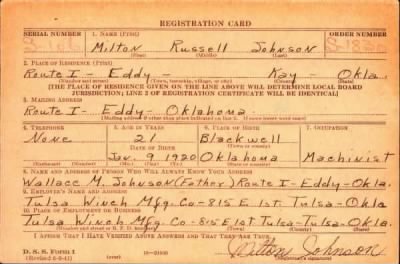 REGISTRATION CARD
SERIAL NUMBER 1. NAME (Print) ORDER NUMBER
S-106 Milton Russell Johnson
(First) (Middle) (Last)
2. PLACE OF RESIDENCE (Print)
Route 1 - Eddy - Kay - Okla.
(Number and street) (Town, township, village, or city) (County) (State)
[THE PLACE OF RESIDENCE GIVEN ON THE LINE ABOVE WILL DETERMINE LOCAL BOARD
JURISDICTION; LINE 2 OF REGISTRATION CERTIFICATE WILL BE IDENTICAL]
3. MAILING ADDRESS
Route 1 - Eddy - Oklahoma.
[Mailing address if other than place indicated on line 2. If same insert word same]
4. TELEPHONE 5. AGE IN YEARS 6. PLACE OF BIRTH 7. OCCUPATION
None 21 Blackwell
DATE OF BIRTH (Town or county)
Jan. 9 1920 Oklahoma Machinist
(Exchange) (Number) (Mo.) (Day) (Yr.) (State or country)
8. NAME AND ADDRESS OF PERSON WHO WILL ALWAYS KNOW YOUR ADDRESS
Wallace M Johnson (Father) Route 1 - Eddy - Okla.
9. EMPLOYER'S NAME AND ADDRESS
Tulsa Winch Mfg. Co - 815 E 1st Tulsa - Okla
10. PLACE OF EMPLOYMENT OR BUSINESS
Tulsa Winch Mfg. Co - 815 E 1st Tulsa - Tulsa - Okla.
(Number and street or R. F. D. number) (Town) (County) (State)
I AFFIRM THAT I HAVE VERIFIED ABOVE ANSWERS AND THAT THEY ARE TRUE.
D. S. S. Form 1
(Revised 6-9-41) (over) Milton Johnson
(Registrant's signature)